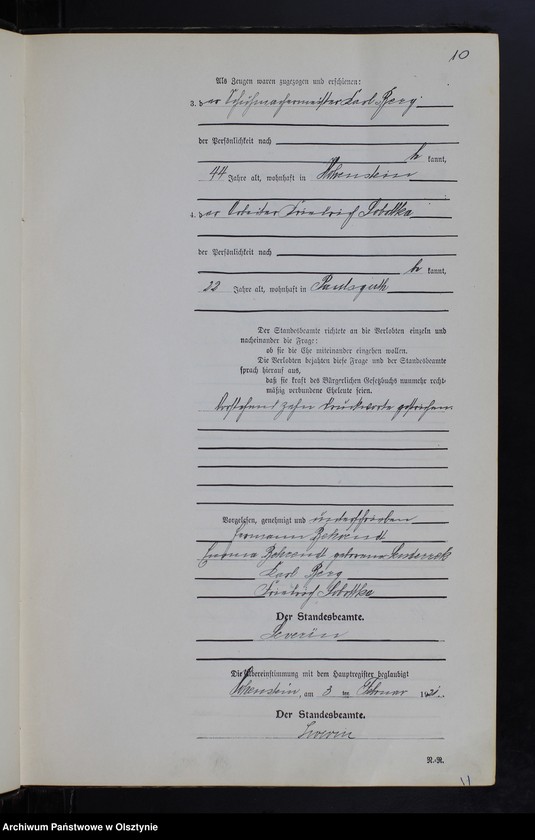 10
Als Zeugen waren zugezogen und erschienen:
3. der Schuhmachermeister Karl Berg
der Persönlichkeit nach
be kannt,
44 Jahre alt, wohnhaft in Hohenstein
4. der Arbeiter Friedrich Sobottka
der Persönlichkeit nach
be kannt,
22 Jahre alt, wohnhaft in Paulsguth
Der Standesbeamte richtete an die Verlobten einzeln und
nacheinander die Frage:
ob sie die Ehe miteinander eingehen wollen.
Die Verlobten bejahten diese Frage und der Standesbeamte
sprach hierauf aus,
daß sie kraft des Bürgerlichen Gesetzbuchs nunmehr recht-
mäßig verbundene Eheleute seien.
Vorstehend zehn Druckworte gestrichen.
Vorgelesen, genehmigt und unterschrieben
Hermann Behrendt
Emma Behrendt geborene
Karl Berg
Friedrich Sobottka
Der Standesbeamte.
Severin
Die Übereinstimmung mit dem Hauptregister beglaubigt
Hohenstein, am 3 ten Februar 192
Der Standesbeamte.
Severin
R.-R.
11
Archiwum Państwowe w Olsztynie